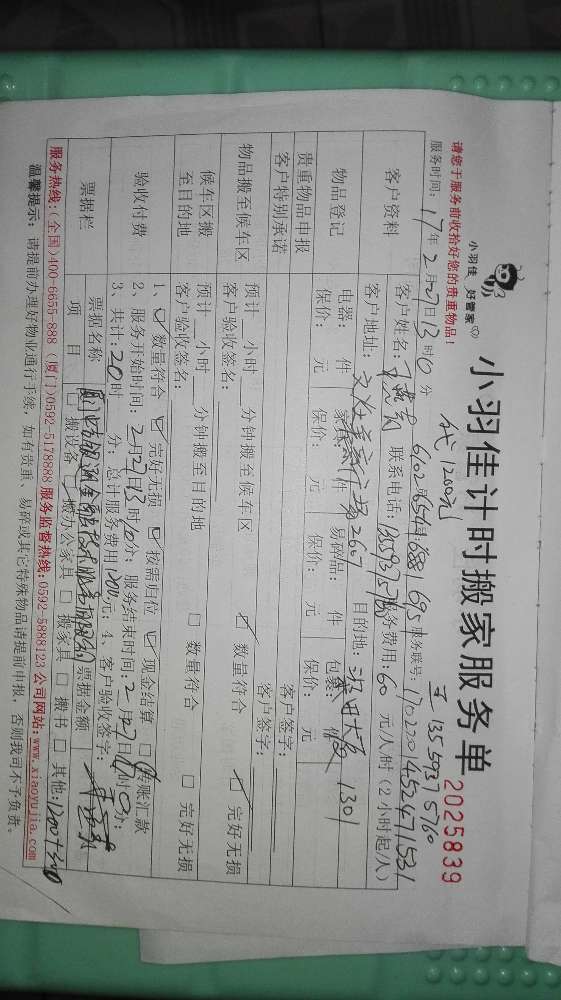 小羽佳 好管家
小羽佳计时搬家服务单
2025839
请您于服务前收拾好您的贵重物品!
服务时间: 17年2月27日13时0分
代1200元
王 13559375760
服务联号: 1702201452471531
客户资料
客户姓名: 联系电话: 服务费用: 60 元/人/时 (2小时起/人)
客户地址: 2607 目的地: 1301
物品登记
电器: 件 家具: 件 易碎品: 件 包裹: 件
贵重物品申报
保价: 元 保价: 元 保价: 元 保价: 元
客户特别承诺
客户签字:
物品搬至候车区
预计 小时 分钟搬至候车区 ☑ 数量符合 ☑ 完好无损
客户验收签名: 客户签字:
候车区搬至目的地
预计 小时 分钟搬至目的地 □ 数量符合 □ 完好无损
客户验收签名:
验收付费
1、☑ 数量符合 ☑ 完好无损 ☑ 按需归位 ☑ 现金结算 □ 转账汇款
2、服务开始时间: 2月27日13时0分; 服务结束时间: 2月27日 时0分;
3、共计: 20时 分; 总计服务费用1200元; 4、客户验收签字:
票据栏
票据名称 票据金额 1200+300
项目 □ 搬设备 □ 搬办公家具 □ 搬家具 □ 搬书 □ 其他:
服务热线: (全国)400-6655-888 (厦门)0592-5178888 服务监督热线: 0592-5888123 公司网站: www.xiaoyujia.com
温馨提示: 请提前办理好物业通行手续, 如有贵重、易碎或其它特殊物品请提前申报, 否则我司不予负责。